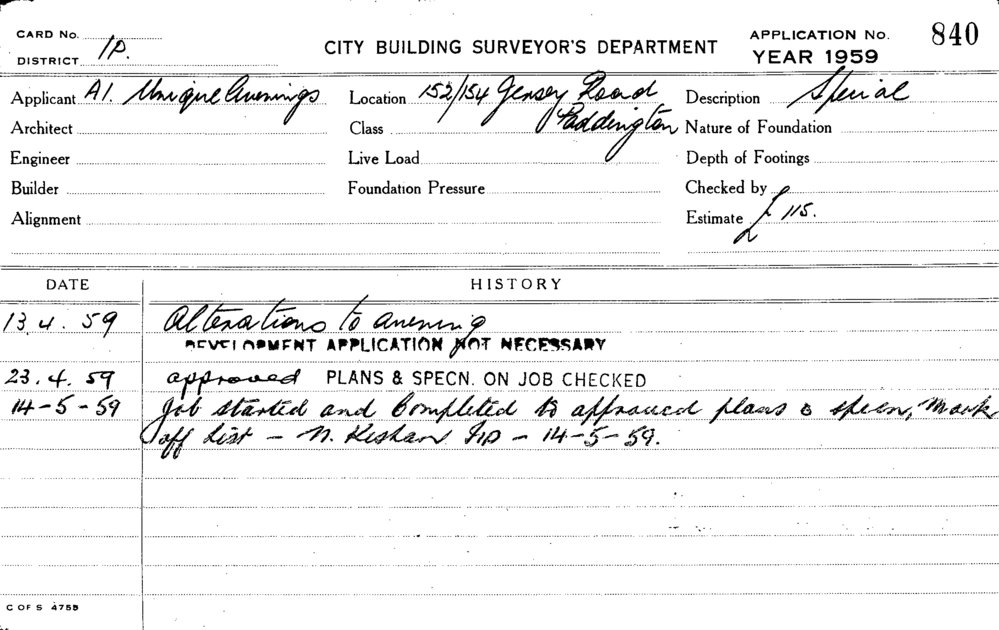 CARD No.
DISTRICT 1P.
CITY BUILDING SURVEYOR'S DEPARTMENT
APPLICATION No. 840
YEAR 1959
Applicant A1. Unique Awnings
Location 152/154 Jersey Road Paddington
Description Special
Architect
Class
Nature of Foundation
Engineer
Live Load
Depth of Footings
Builder
Foundation Pressure
Checked by
Alignment
Estimate £ 115.
DATE HISTORY
13.4.59 Alterations to awning
DEVELOPMENT APPLICATION NOT NECESSARY
23.4.59 approved PLANS & SPECN. ON JOB CHECKED
14-5-59 Job started and completed to approved plans & specn, Mark
off list - N. - 14-5-59.
C OF S 4755